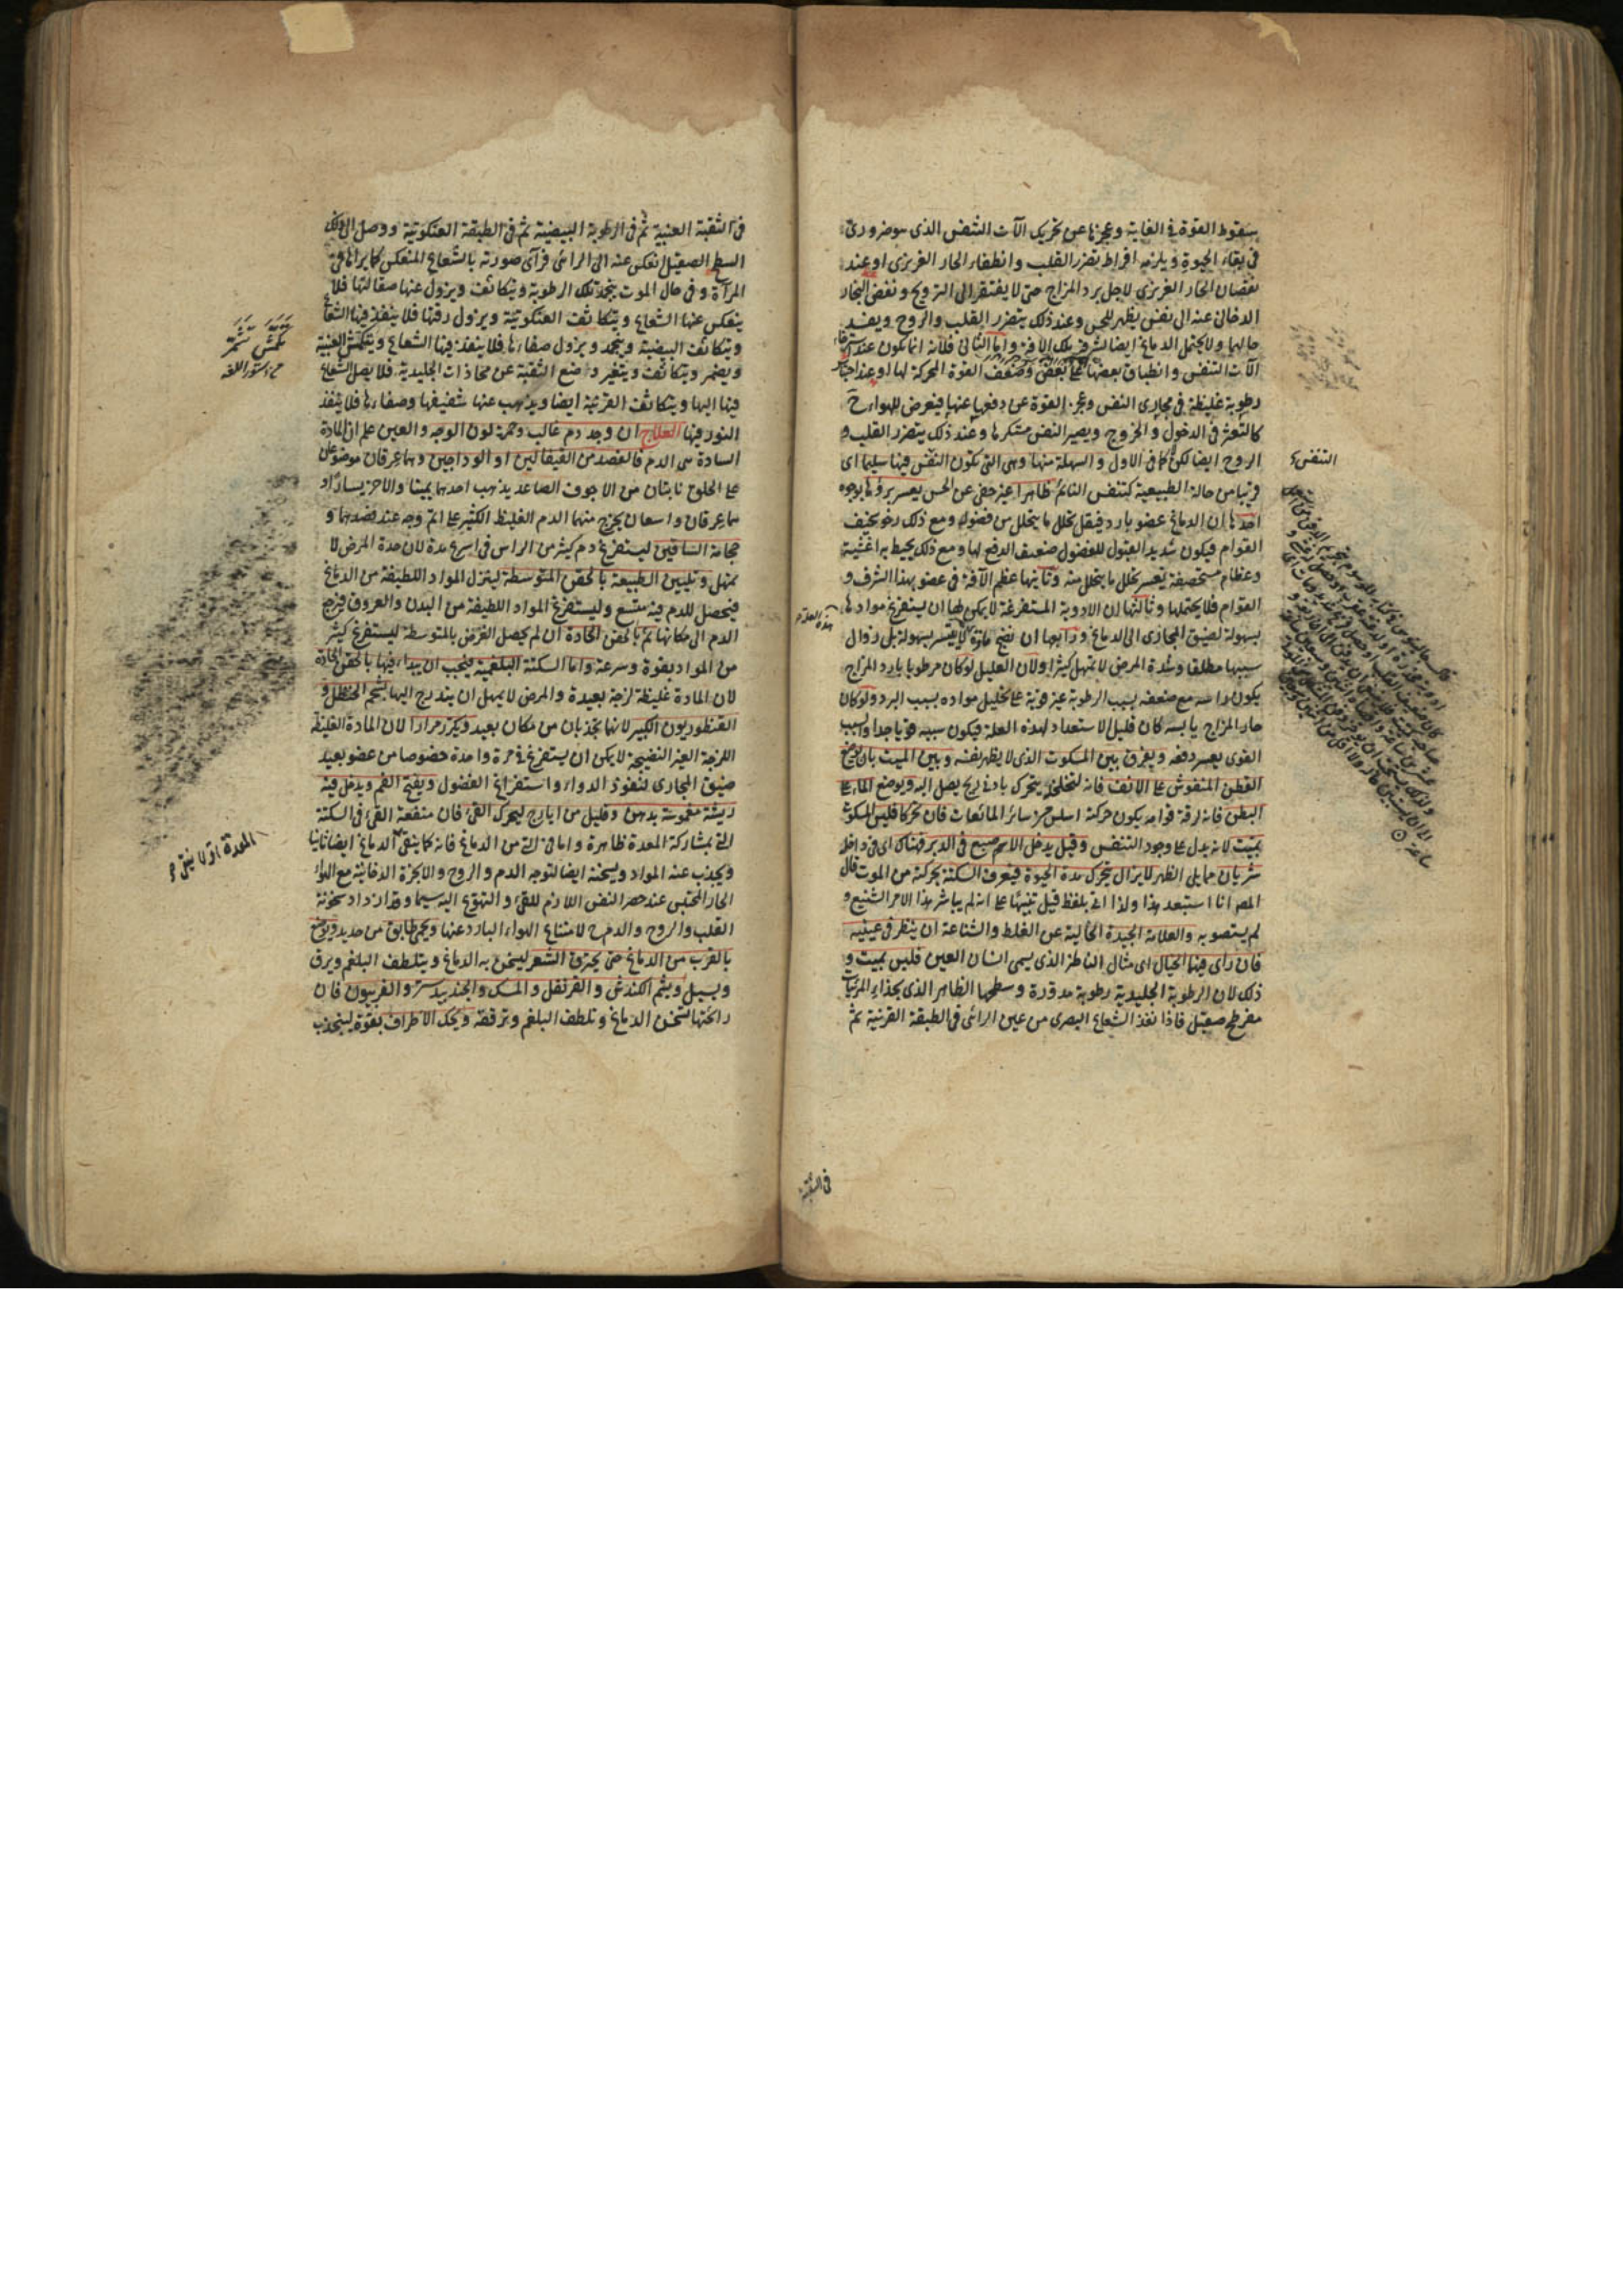 سقوط القوة فى الغاية وعجزها عن تحريك الآت التنفس الذى هو ضرورى
فى بقاء الحيوة ويلزمه افراط تضرر القلب وانطفاء الحار الغريزى او عند
نقصان الحار الغريزى لاجل برد المزاج حتى لا يفتقر الى الترويح ونفض البخار
الدخانى عنه الى نفس يظهر للحس وعند ذلك يتضرر القلب والروح ويفسد
حالهما ولا يحتمل الدماغ ايضا لشرفه تلك الافة واما الثانى فلانه انما يكون عند
آلات التنفس وانطباق بعضها على بعض وضعف القوة المحركة لها او عند احتباس
رطوبة غليظة فى مجارى النفس وعجز القوة عن دفعها عنها فيعرض للهواء ح
كالتعثر فى الدخول والخروج ويصير النفس متكرها وعند ذلك يتضرر القلب و
الروح ايضا لكن كما فى الاول والسهلة منها وهى التى تكون النفس فيها سليما اى
قريبا من حالة الطبيعية كتنفس النائم ظاهرا غير خفى عن الحس يعسر برؤها بوجوه
احدها ان الدماغ عضو بارد فيقل تحلل ما يتحلل من فضوله ومع ذلك رخو سخيف
القوام فيكون شديد القبول للفضول ضعيف الدفع لها ومع ذلك يحيط به اغشية
وعظام مستحصفة يعسر تحلل ما يتحلل منه وثانيها عظم الآفة فى عضو بهذا الشرف و
القوام فلا يحتملها وثالثها ان الادوية المستفرغة لا يمكن لها ان يستفرغ موادها
بسهولة لضيق المجارى الى الدماغ ورابعها ان نضج مادة لا يتيسر بسهولة بل زوال
سببها مطلقا وشدة المرض لا تمهل كثيرا ولان العليل لو كان مرطوبا بارد المزاج
يكون راسه مع ضعفه بسبب الرطوبة غير قوية على تحليل مواده بسبب البرد ولو كان
حار المزاج يابسه كان قليل الاستعداد لهذه العلة فيكون سببه قويا جدا والسبب
القوى يعسر دفعه ويفرق بين المسكوت الذى لا يظهر نفسه وبين الميت بان يوضع
القطن المنفوش على الانف فانه لتخلخله يتحرك بادنى ريح يصل اليه ويوضع الماء على
البطن فانه لرقة قوامه يكون حركته اسلس من سائر المائعات فان تحركا فليس المسكوت
بميت لانه يدل على وجود التنفس وقيل يدخل الاصبع فى الدبر فهناك اى فى داخله
شريان مما يلى الظهر لا يزال يتحرك مدة الحيوة فيعرف السكتة بحركته من الموت قال
المص انا استبعد هذا ولذا اتى بلفظ قيل تنبيها على انه لم يباشر هذا الامر الشنيع و
لم يستصوبه والعلامة الجيدة الخالية عن الغلط والشناعة ان ينظر فى عينيه
فان رأى فيها الخيال اى مثال الناظر الذى يسمى انسان العين فليس بميت و
ذلك لان الرطوبة الجليدية رطوبة مدورة وسطحها الظاهر الذى بحذاء المرئيات
مفرطح صقيل فاذا نفذ الشعاع البصرى من عين الرائى فى الطبقة القرنية ثم
التنفس
هذه العلة
فى الثقبة
فى الثقبة العنبية ثم فى الرطوبة البيضية ثم فى الطبقة العنكبوتية ووصل الى ذلك
السطح الصقيل انعكس عنه الى الرائى فرآى صورته بالشعاع المنعكس كما يراها فى
المرآة وفى حال الموت ينجمد تلك الرطوبة ويتكاثف ويزول عنها صقالتها فلا
ينعكس عنها الشعاع ويتكاثف العنكبوتية ويزول رقتها فلا ينفذ فيها الشعاع
ويتكاثف البيضية وينجمد ويزول صفاءها فلا ينفذ فيها الشعاع ويتكمش العنبية
ويضمر ويتكاثف ويتغير وضع الثقبة عن محاذات الجليدية فلا يصل الشعاع
فيها اليها ويتكاثف القرنية ايضا ويذهب عنها شفيفها وصفاءها فلا ينفذ
النور فيها العلاج ان وجد دم غالب وحمرة لون الوجه والعين علم ان المادة
السادة هى الدم فالفصد من القيفالين او الوداجين وهما عرقان موضوعان
على الحلق نابتان من الاجوف الصاعد يذهب احدهما يمينا والاخر يسارا و
هما عرقان واسعان يخرج منهما الدم الغليظ الكثير على اتم وجه عند فصدهما و
حجامة الساقين ليستفرغ دم كثير من الراس فى اسرع مدة لان حدة المرض لا
تمهل وتليين الطبيعة بالحقن المتوسطة لينزل المواد اللطيفة من الدماغ
فيحصل للدم فيه متسع وليستفرغ المواد اللطيفة من البدن والعروق فيرجع
الدم الى مكانها ثم بالحقن الحادة ان لم يحصل الغرض بالمتوسطة ليستفرغ كثير
من المواد بقوة وسرعة واما السكتة البلغمية فيجب ان يبداء فيها بالحقن الحادة
لان المادة غليظة لزجة بعيدة والمرض لا يمهل ان يتدرج اليها بشحم الحنظل و
القنطوريون الكبير لانها يجذبان من مكان بعيد ويكرر مرارا لان المادة الغليظة
اللزجة الغير النضيجة لا يمكن ان يستفرغ فى مرة واحدة خصوصا من عضو بعيد
ضيق المجارى لنفوذ الدواء واستفراغ الفضول ويفتح الفم ويدخل فيه
ريشة مغموسة بدهن وقليل من ايارج ليحرك القئ فان منفعة القئ فى السكتة
التى بمشاركة المعدة ظاهرة واما فى التى من الدماغ فانه كما ينقى الدماغ ايضا ثانيا
ويجذب عنه المواد ويسخنه ايضا لتوجه الدم والروح والابخرة الدخانية مع الهواء
الحار المحتبس عند حصر النفس اللازم للقئ والتهوع اليه سيما وقد ازداد سخونة
القلب والروح والدم ح لامتناع الهواء البارد عنها ويحمى طابق من حديد ويوضع
بالقرب من الدماغ حتى يحترق الشعر ليسخن به الدماغ ويتلطف البلغم ويرق
ويسيل ويشم الكندش والقرنفل والمسك والجندبيدستر والفربيون فان
رائحتها تسخن الدماغ وتلطف البلغم وترققه ويحك الاطراف بقوة لينجذب
تكمش تشمر
دستور اللغة
المعدة اولا ينقى